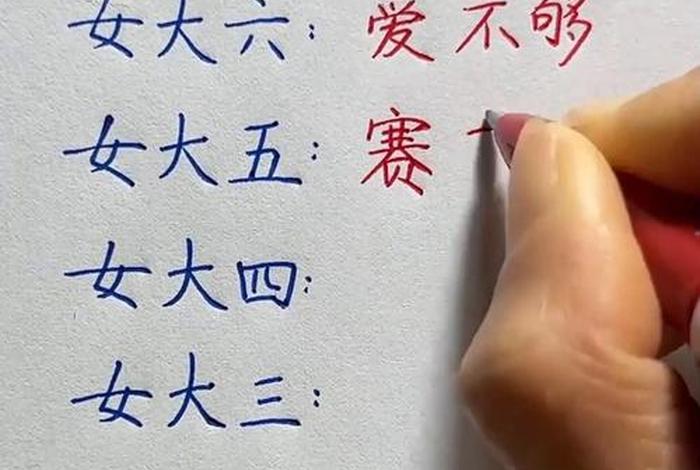 女大六：爱不够
女大五：赛
女大四：
女大三：